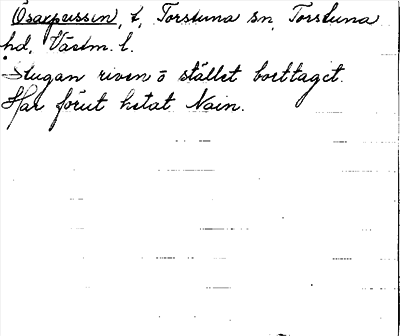 Ösarpussin, t, Torstuna sn, Torstuna
hd, Västm. l.
Stugan riven o stället borttaget.
Har förut hetat Nain.